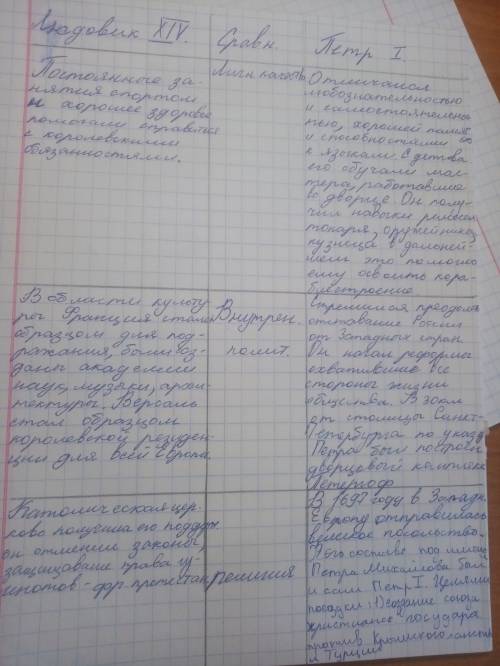 Людовик XIV.
Сравн.
Петр I.
Постоянного за-
нятия спортом
и хорошее здоровье
помогали справиться
с королевскими
обязанностями.
Личн. качеств
Отличался
любознательностью
и самостоятельнос
тью, хорошей памят
и способностями
к языкам. С детства
его обучали мас
тера, работавшие
во дворце. Он полу-
чил навыки ремесел
токаря, оружейника,
кузнеца, в дальней-
шем это помогло
ему освоить кора-
блестроение
В области культу
ры Франция стала
образцом для под-
ражания, были соз-
даны академии
наук, музыки, архи-
тектуры. Версаль
стал образцом
королевской резиден
ции для всей Европы.
Внутрен.
полит.
Стремился преодолеть
отставание России
от Западных стран.
Он начал реформы
охватившие все
стороны жизни
общества. В 30км
от столицы Санкт-
Петербурга по указу
Петра был построен
дворцовый комплекс
Петергоф
Католическая цер-
ковь получила его поддерж
он отменил законы,
защищавшие права гу-
генотов - фр. протестан
религия
В 1697 году в Западн.
Европу отправилась
великое посольство.
В его составе под именем
Петра Михайлова был
и сам Петр I. Целями
поездки: 1) создание союза
христианс государств
против Крымского ханства
и Турции